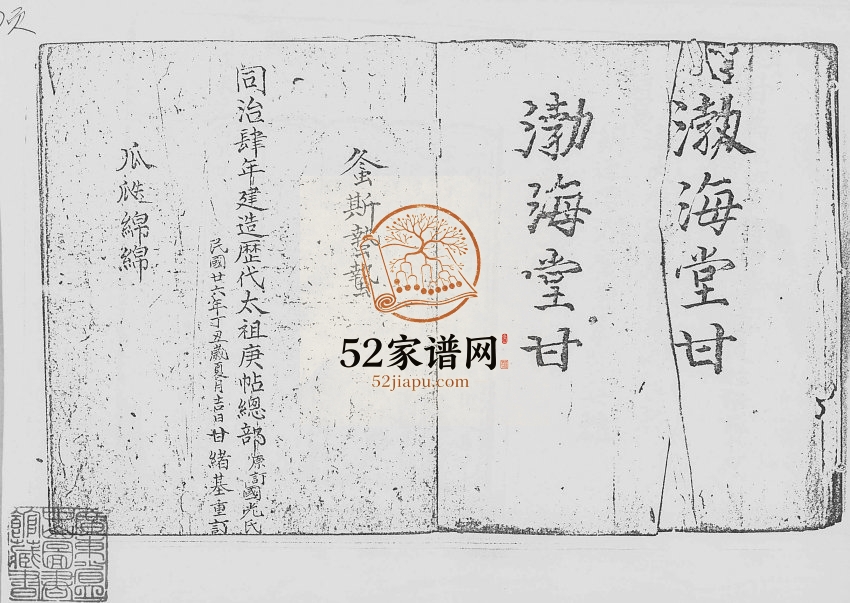 渤海堂甘
渤海堂甘
螽斯蟄蟄
同治肆年建造歷代太祖庚帖總部 原訂國光氏
民國廿六年丁丑歲夏月吉日甘緒基重訂
瓜瓞綿綿
52家谱网
52jiapu.com
廣東省
圖書
館藏書